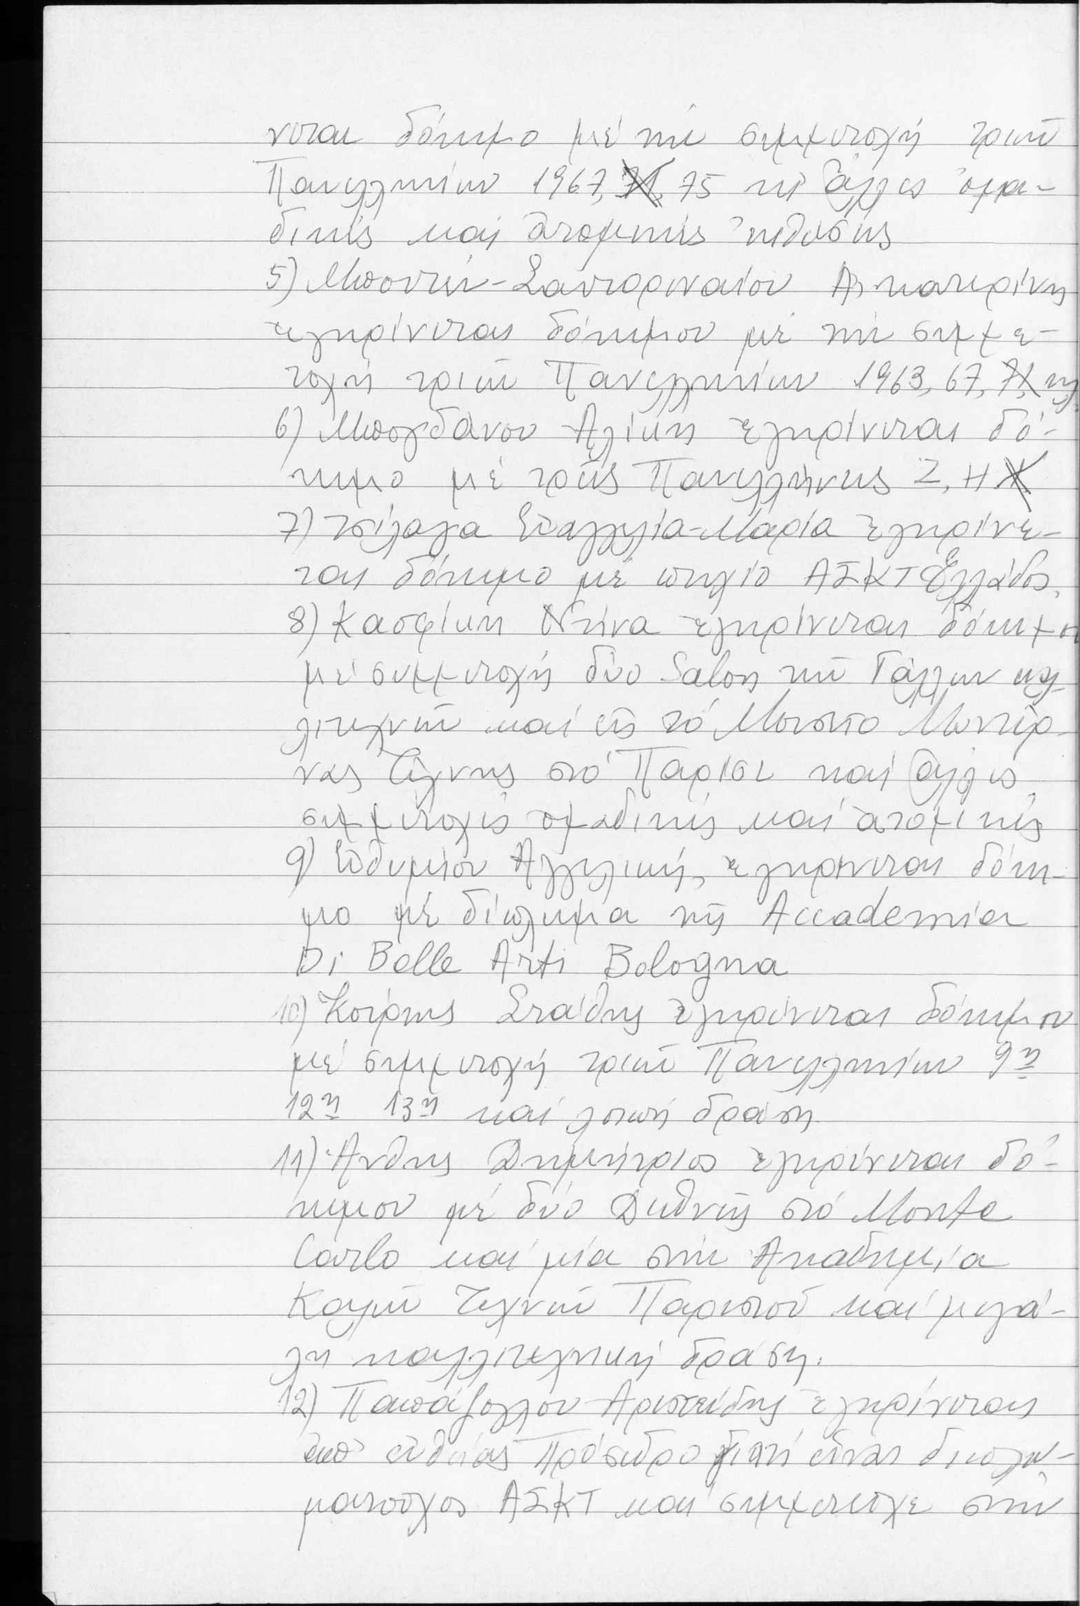 νεται δόκιμο μέ τήν συμμετοχή τριῶν
Πανελληνίων 1967, 71, 75 κι' ἄλλες ὁμα-
δικές καί ἀτομικές ἐκθέσεις
5) Μποντέν-Σαντοριναίου Αἰκατερίνη
ἐγκρίνεται δόκιμου μέ τήν συμμε-
τοχή τριῶν Πανελληνίων 1963, 67, 71
6) Μπογδάνου Ἀλίκη ἐγκρίνεται δό-
κιμο μέ τρεῖς Πανελλήνιες Ζ, Η
7) Τσίλαγα Εὐαγγελία-Μαρία ἐγκρίνε-
ται δόκιμο μέ πτυχίο ΑΣΚΤ Ἑλλάδος.
8) Κασφίκη Ντίνα ἐγκρίνεται δόκιμη
μέ συμμετοχή δύο Salon τῶν Γάλλων καλ
λιτεχνῶν καί εἰς τό Μουσεῖο Μοντέρ-
νας Τέχνης στό Παρίσι καί ἄλλες
συμμετοχές ὁμαδικές καί ἀτομικές
9) Εὐθυμίου Ἀγγελική, ἐγκρίνεται δόκι-
μο μέ δίπλωμα τῆς Accademia
Di Belle Arti Bologna
10) Κοίρης Σταύης ἐγκρίνεται δόκιμου
μέ συμμετοχή τριῶν Πανελληνίων 9η
12η 13η καί λοιπή δράση
11) Ἄνθης Δημήτριος ἐγκρίνεται δό-
κιμου μέ δύο Διεθνεῖς στό Monte
Carlo καί μία στήν Ἀκαδημία
Καλῶν Τεχνῶν Παρισιοῦ καί μεγά-
λη καλλιτεχνική δράση.
12) Παπάζογλου Ἀριστείδης ἐγκρίνεται
ἀπ' εὐθείας Πρόεδρο γιατί εἶναι διπλω-
ματοῦχος ΑΣΚΤ καί συμμετεῖχε στήν